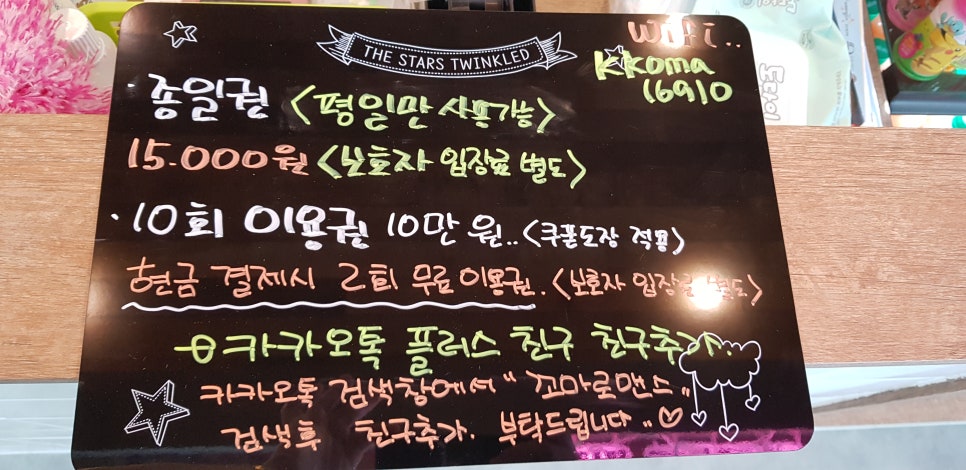 THE STARS TWINKLED
Wifi..
Kkoma
16910
종일권 <평일만 사용가능>
15.000원 <보호자 입장료 별도>
·10회 이용권 10만 원..<쿠폰도장 적용>
현금 결제시 2회 무료 이용권.<보호자 입장료 별도>
카카오톡 플러스 친구 친구추가..
카카오톡 검색창에서 "꼬마로맨스"
검색후 친구추가. 부탁드립니다..♡